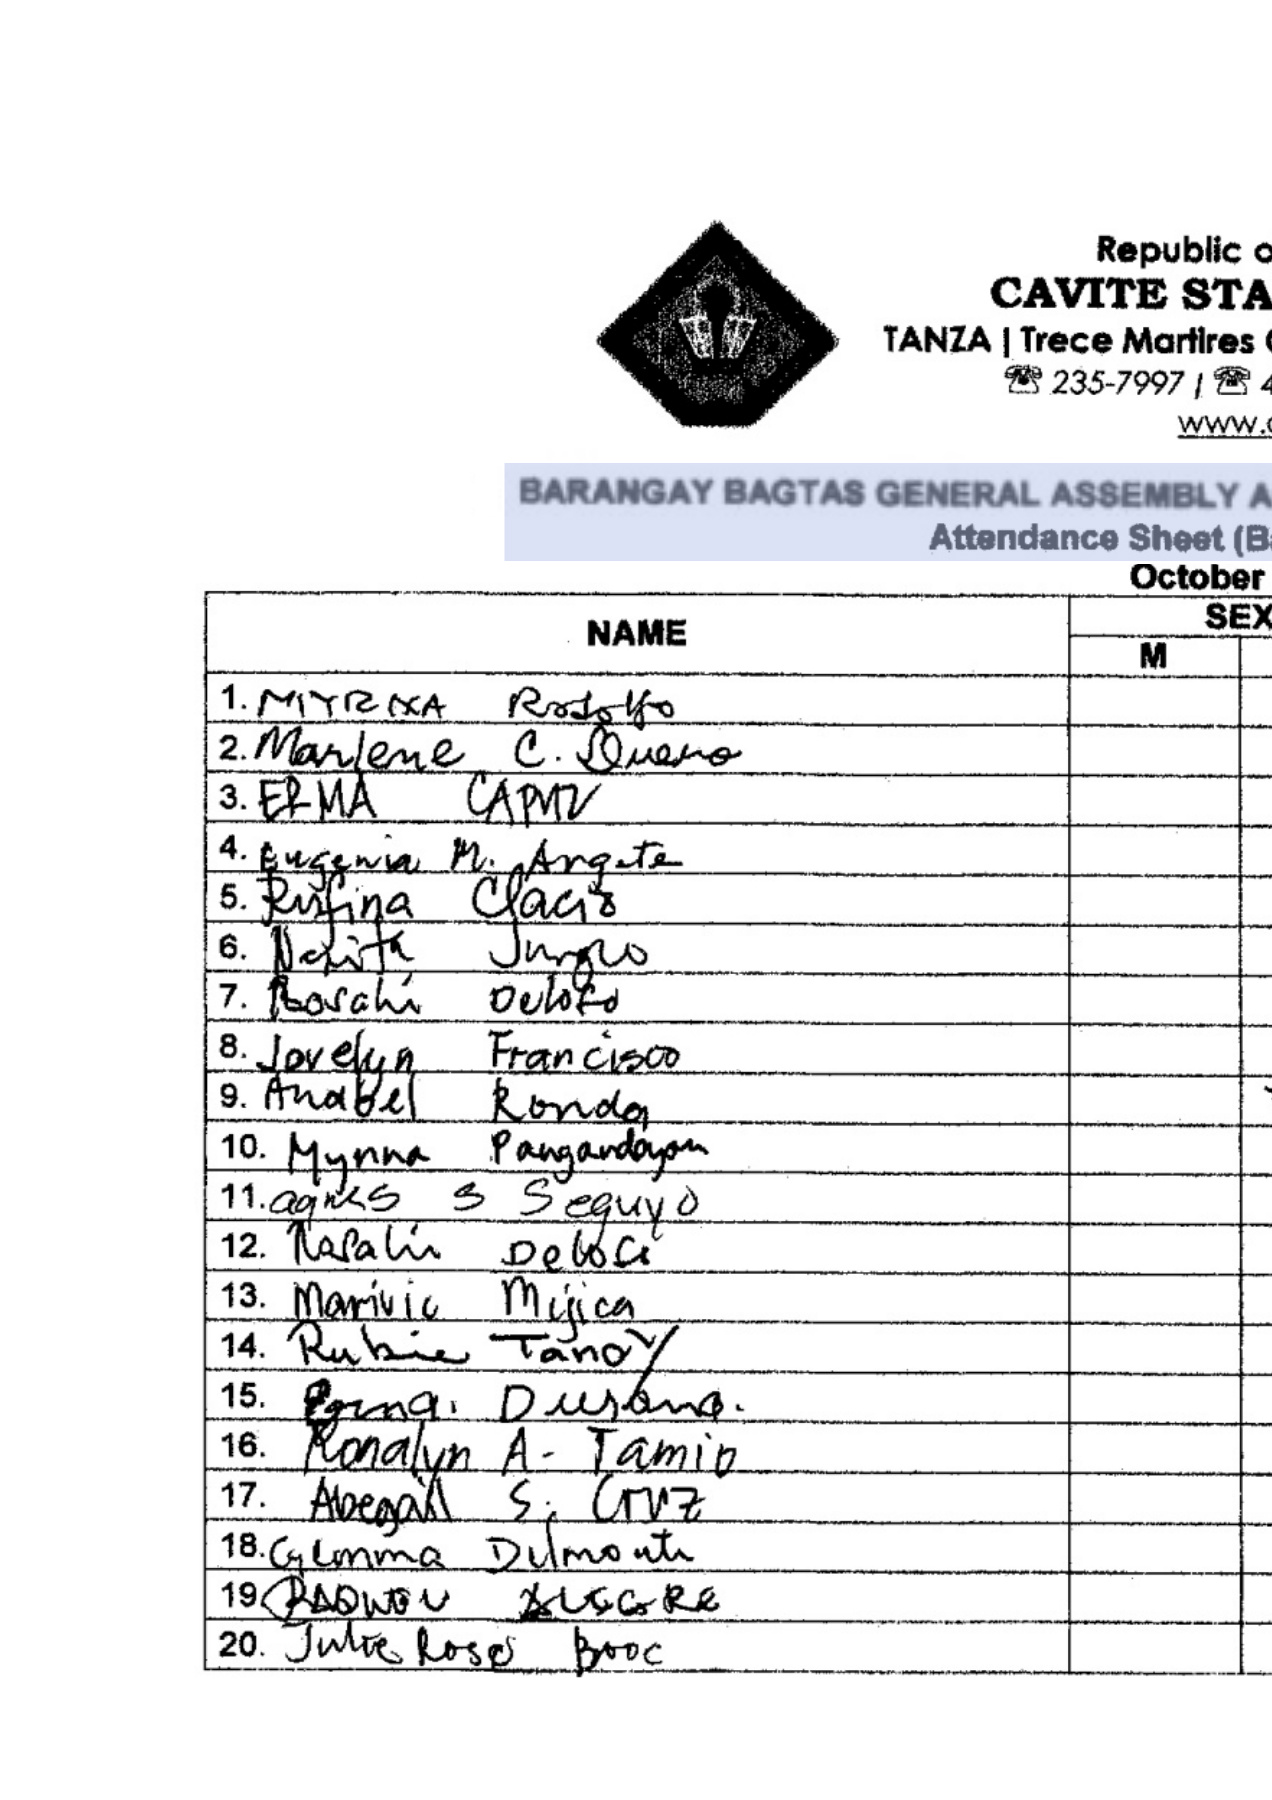 Republic
CAVITE STA
TANZA | Trece Martires
☏ 235-7997 / ☏ 4
www.
BARANGAY BAGTAS GENERAL ASSEMBLY A
Attendance Sheet (Ba
October
NAME
SEX
M
1. MYRNA Rodolfo
2. Marlene C. Bueno
3. ERMA
4. Eugenia M. Argete
5. Rufina Clacio
6. Nenita
7. Rosalii
8. Jovelyn Francisco
9. Anabel Ronda
10. Mynna Pangandoyon
11. agnes S Seguyo
12. Rosalii
13. Marivic Mijica
14. Rubie Tanoy
15. Durano.
16. Ronalyn A- Tamio
17. Abegail S. Cruz
18. Glomma Delmonte
19
20. Julie Rose Booc